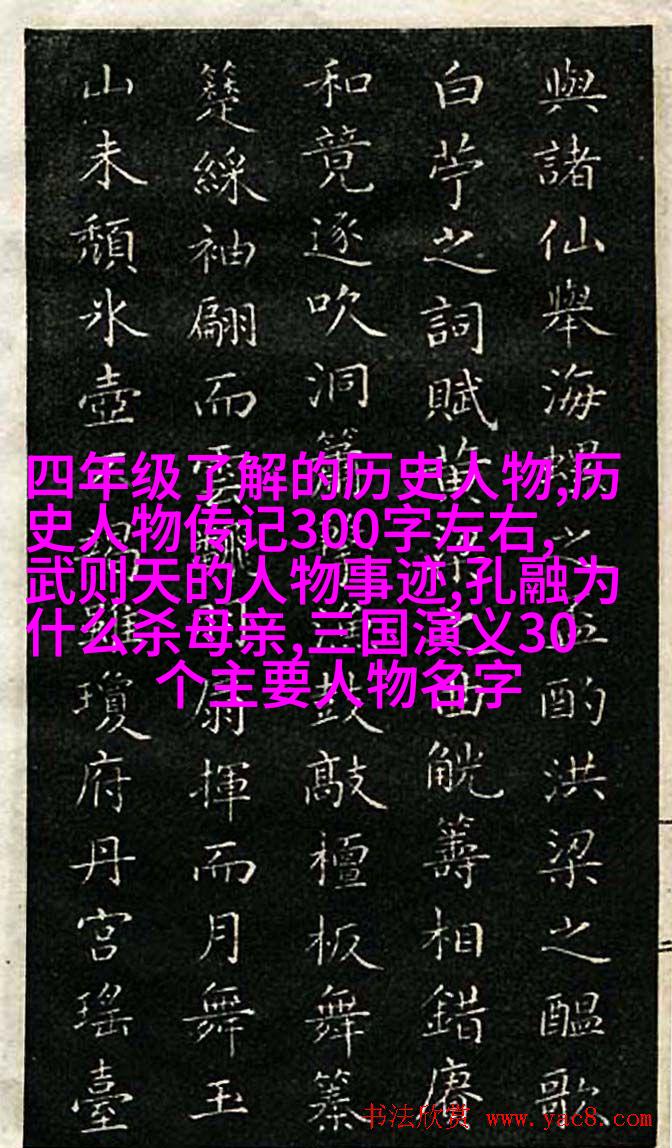 四年级了解的历史人物,历
史人物传记300字左右,
武则天的人物事迹,孔融为
什么杀母亲,三国演义30
个主要人物名字
與諸仙舉海螺之酌洪梁之醞歌
白苧之詞賦黄之曲觥籌相錯賡
和竟逐吹洞簫鼓敲檀板舞
綵袖翩而雲扇揮而月舞玉
山未頹氷壺雖瓊府丹宮瑤臺
书法欣赏 www.yac8.com